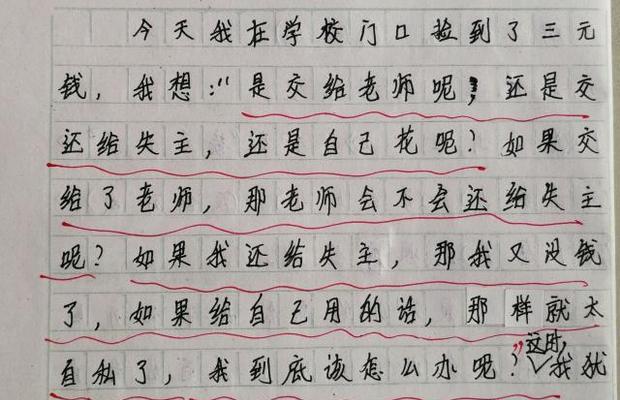 今天我在学校门口捡到了三元
钱，我想:"是交给老师呢，还是交
还给失主，还是自己花呢？如果交
给了老师，那老师会不会还给失主
呢？如果我还给失主，那我又没钱
了，如果给自己用的话，那样就太
自私了，我到底该怎么办呢？"这时，我犹